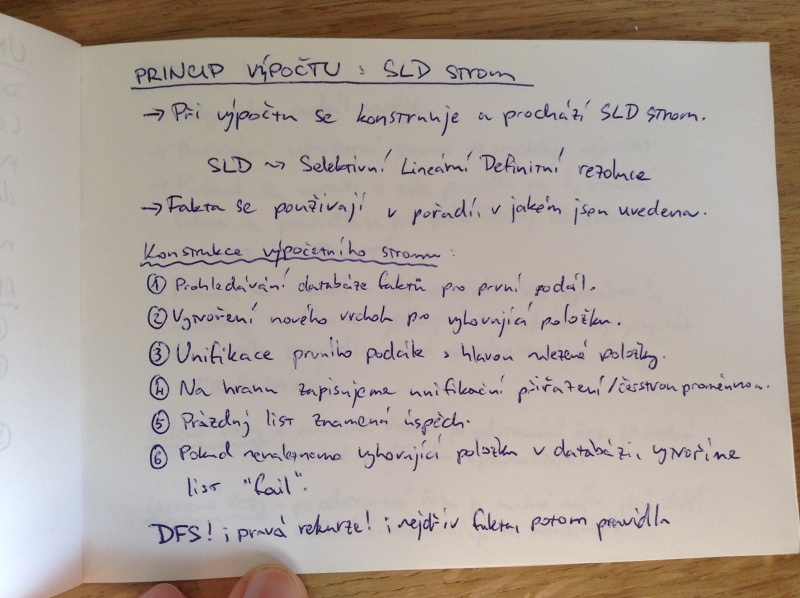 PRINCIP VÝPOČTU : SLD STROM
→ Při výpočtu se konstruuje a prochází SLD strom.
SLD ~> Selektivní Lineární Definitní rezoluce
→ Fakta se používají v pořadí, v jakém jsou uvedena.
Konstrukce výpočetního stromu :
① Prohledávání databáze faktů pro první podcíl.
② Vytvoření nového vrcholu pro vyhovující položku.
③ Unifikace prvního podcíle s hlavou nalezené položky.
④ Na hranu zapisujeme unifikační přiřazení/čerstvou proměnnou.
⑤ Prázdný list znamená úspěch.
⑥ Pokud nenalezneme vyhovující položku v databázi, vytvoříme
list "fail".
DFS! ; pravá rekurze! ; nejdřív fakta, potom pravidla